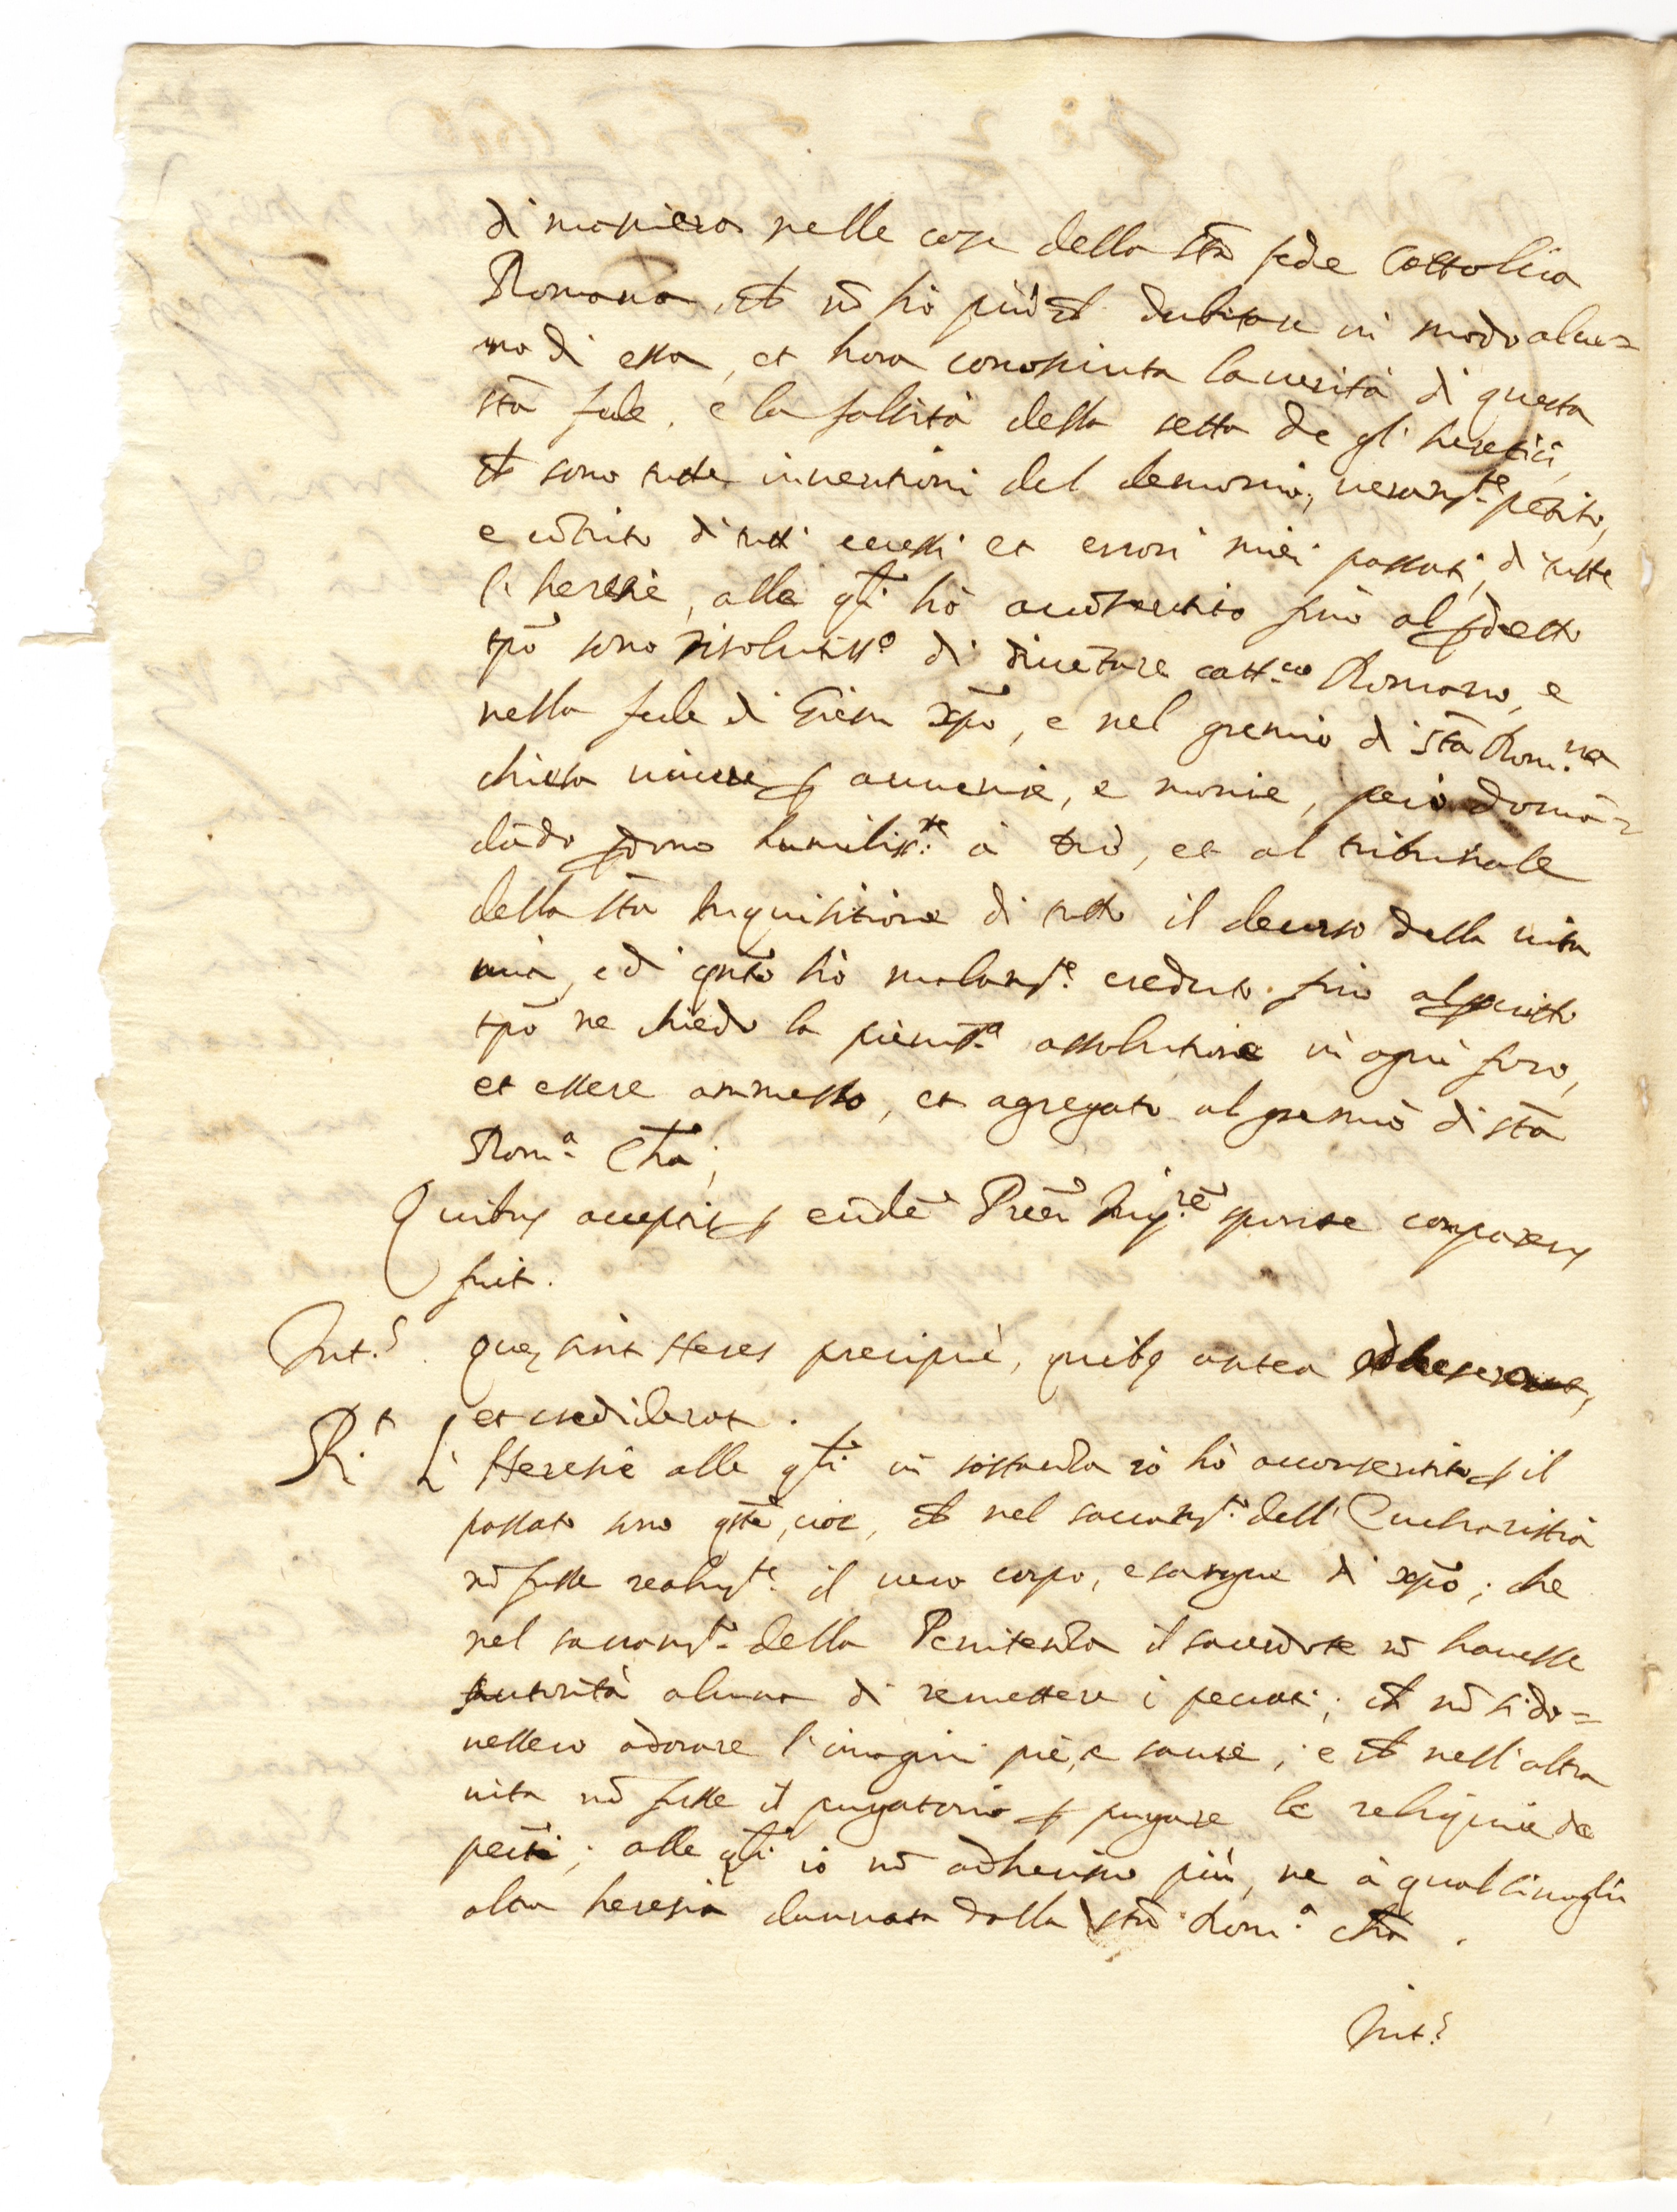 di maniera nelle cose della sta fede Cattolica
Romana, che nō hò più che dubitare in modo alcu=
no di essa, et hora conosciuta la verità di questa
sta fede, e la falsità della setta de gl'heretici,
che sono tutte inventioni del demonio, veramte pētito,
e cōtrito di tutti eccessi et errori miei passati, di tutte
l'heresie, alle qli hò accōsentito fino al pdetto
tpō sono risolutisso di diuētare cattco Romano, e
nella fede di Giesu Xpō, e nel gremio di Sta Romna
chiesa uiuere p auuenire, e morire, però domā=
dādo pdono humilte à Dio, et al tribunale
della sta Inquisitione di tutto il decorso della uita
mia, e di qnto hò malamte creduto fino al pnte
tpō ne chiedo la pienissa assolutione in ogni foro,
et essere ammesso, et agregato al gremio di sta
Roma Cha;
Quibus acceptis p eūdē Prēm Inqrē sponte comparens
fuit.
Int.s quae sint Heres precipuè, quibq antea adheserat,
et crediderat.
R.t L'Heresie alle qli in sostanza io hò acconsentito p il
passato sono qste, cioe, che nel sacramto dell'Eucharistia
nō fusse realmte il uero corpo, e sangue di Xpō; che
nel sacramto della Penitenza il sacerdote nō hauesse
autorità alcuna di remettere i peccati; che nō si do=
uessero adorare l'imagini pie, e sante; e che nell'altra
uita nō fusse il purgatorio p purgare le reliquie de
pecti; alle qli io nō adherisco più, ne à qual si uoglia
altra heresia dannata dalla sta Roma Cha.
Int.s